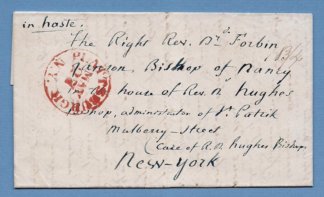 in haste.
The Right Rev. Dr. Forbin
Janson, Bishop of Nancy
house of Rev. D. Hughes
Bishop, administrator of St Patrik
Mulberry-Street
(Care of R. D. Hughes Bishop.
New-York
PITTSBURGH PA
MAY